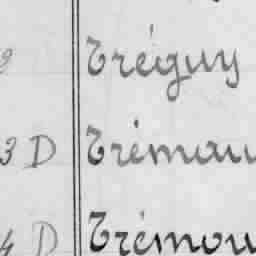 9 Tréguy
3 D Trémau
4 D Trémou